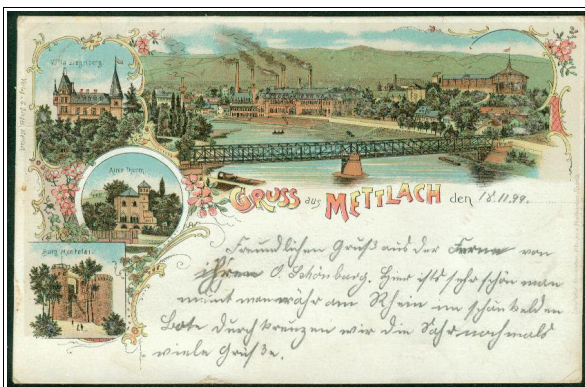 Villa Ziegelberg
Alter Thurm
Burg Montclair
GRUSS aus METTLACH den 18.11.99.
Freundlichen Gruß aus der Ferne von
ihrem O Schönburg. Hier ists sehr schön man
meint man währ am Rhein im schönkelden
Bote durch kreuzen wir die Sahr nochmals
viele Grüße.